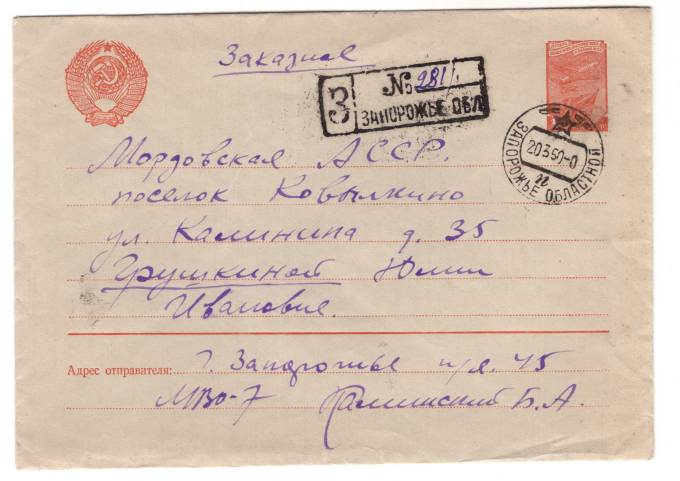 Заказное
З № 281
ЗАПОРОЖЬЕ ОБЛ
ЗАПОРОЖЬЕ ОБЛАСТНОЙ
20350-0
Мордовская АССР.
поселок Ковылкино
ул. Калинина д. 35
Грушкиной Юлии
Ивановне.
Адрес отправителя: г. Запорожье п/я. 45
Б.А.